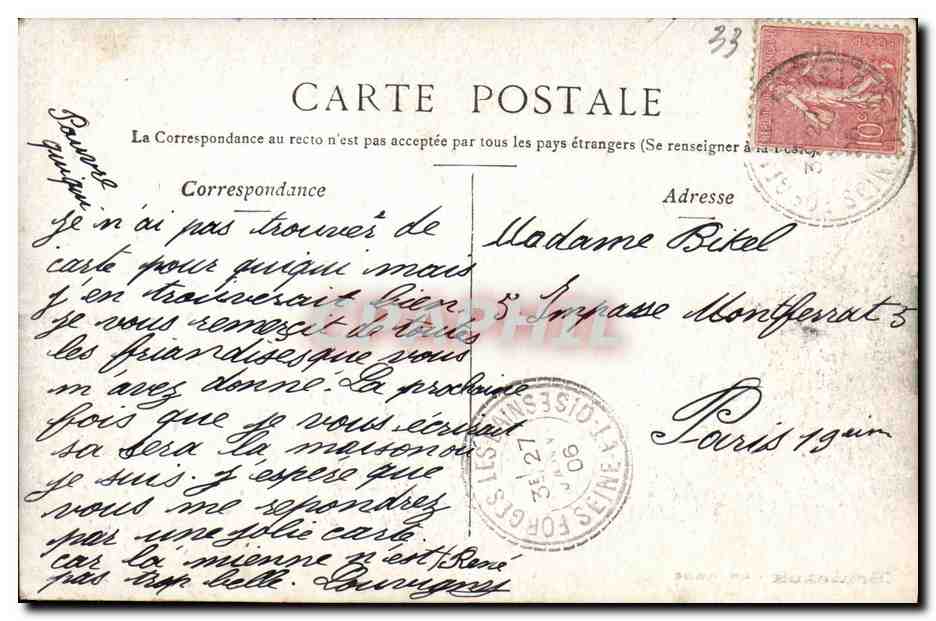 33
CARTE POSTALE
La Correspondance au recto n'est pas acceptée par tous les pays étrangers (Se renseigner à la Poste)
Correspondance
Adresse
Pauvre
quiqui
je n'ai pas trouver de
carte pour quiqui mais
j'en trouverait bien
je vous remerçit de toutes
les friandises que vous
m'avez donné. La prochaine
fois que je vous écrirait
sa sera la maison où
je suis. j'espère que
vous me repondrez
par une jolie carte
car la mienne n'est
pas trop belle. René
Louvigny
Madame Bikel
5 Impasse Montferrat 5
Paris 19eim
FORGES LES BAINS SEINE-OISE
3E 27
JANV
06
10c
CPAPHIL